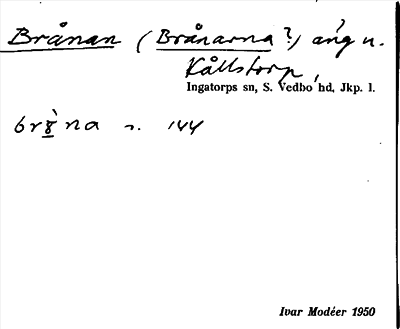 Brånan (Brånarna?) äng n.
Källstorp,
Ingatorps sn, S. Vedbo hd, Jkp. l.
bràna s. 144
Ivar Modéer 1950